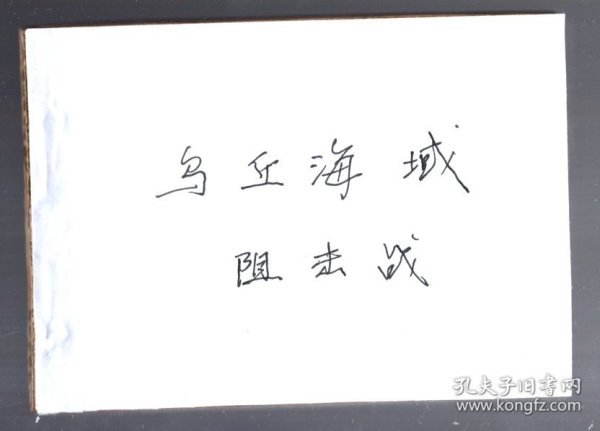 乌丘海域
阻击战
孔夫子旧书网
www.kongfz.com